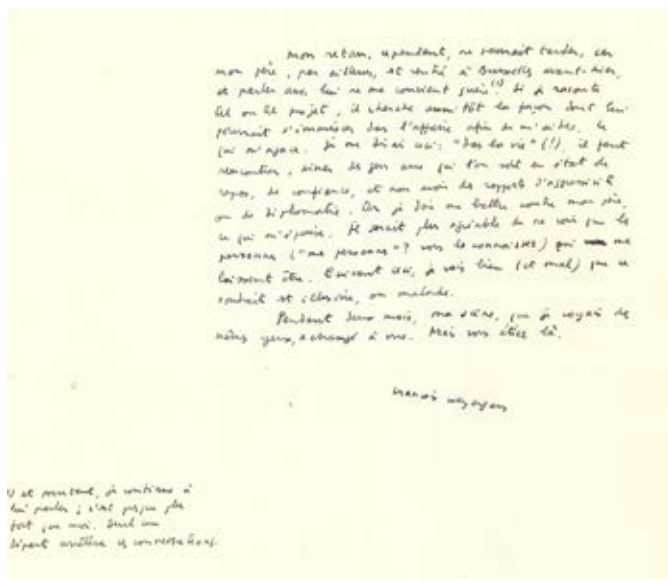 Mon retour, cependant, ne saurait tarder, car
mon père, par ailleurs, est rentré à Bruxelles avant-hier,
et parler avec lui ne me convient guère (1). Si je raconte
tel ou tel projet, il cherche aussitôt la façon dont lui
pourrait s'immiscer dans l'affaire afin de m'aider. Ce
qui m'agace. Je me dis ceci : "Dans la vie" (!), il faut
rencontrer, aimer des gens avec qui l'on soit en état de
repos, de confiance, et non avoir des rapports d'agressivité
ou de diplomatie. Or je dois me battre contre mon père,
ce qui m'épuise. Il serait plus agréable de ne voir que les
personnes ("une personne"? vous la connaissez) qui me
laissent être. Écrivant ceci, je vois bien (et mal) que ce
souhait est illusoire, ou malade.
Pendant deux mois, ma scène, que je voyais des
mêmes yeux, a changé à vue. Mais vous étiez là.
François Weyergans
et pourtant, je continue à
lui parler ; c'est presque plus
fort que moi. Seul un
départ arrêtera ces conversations.